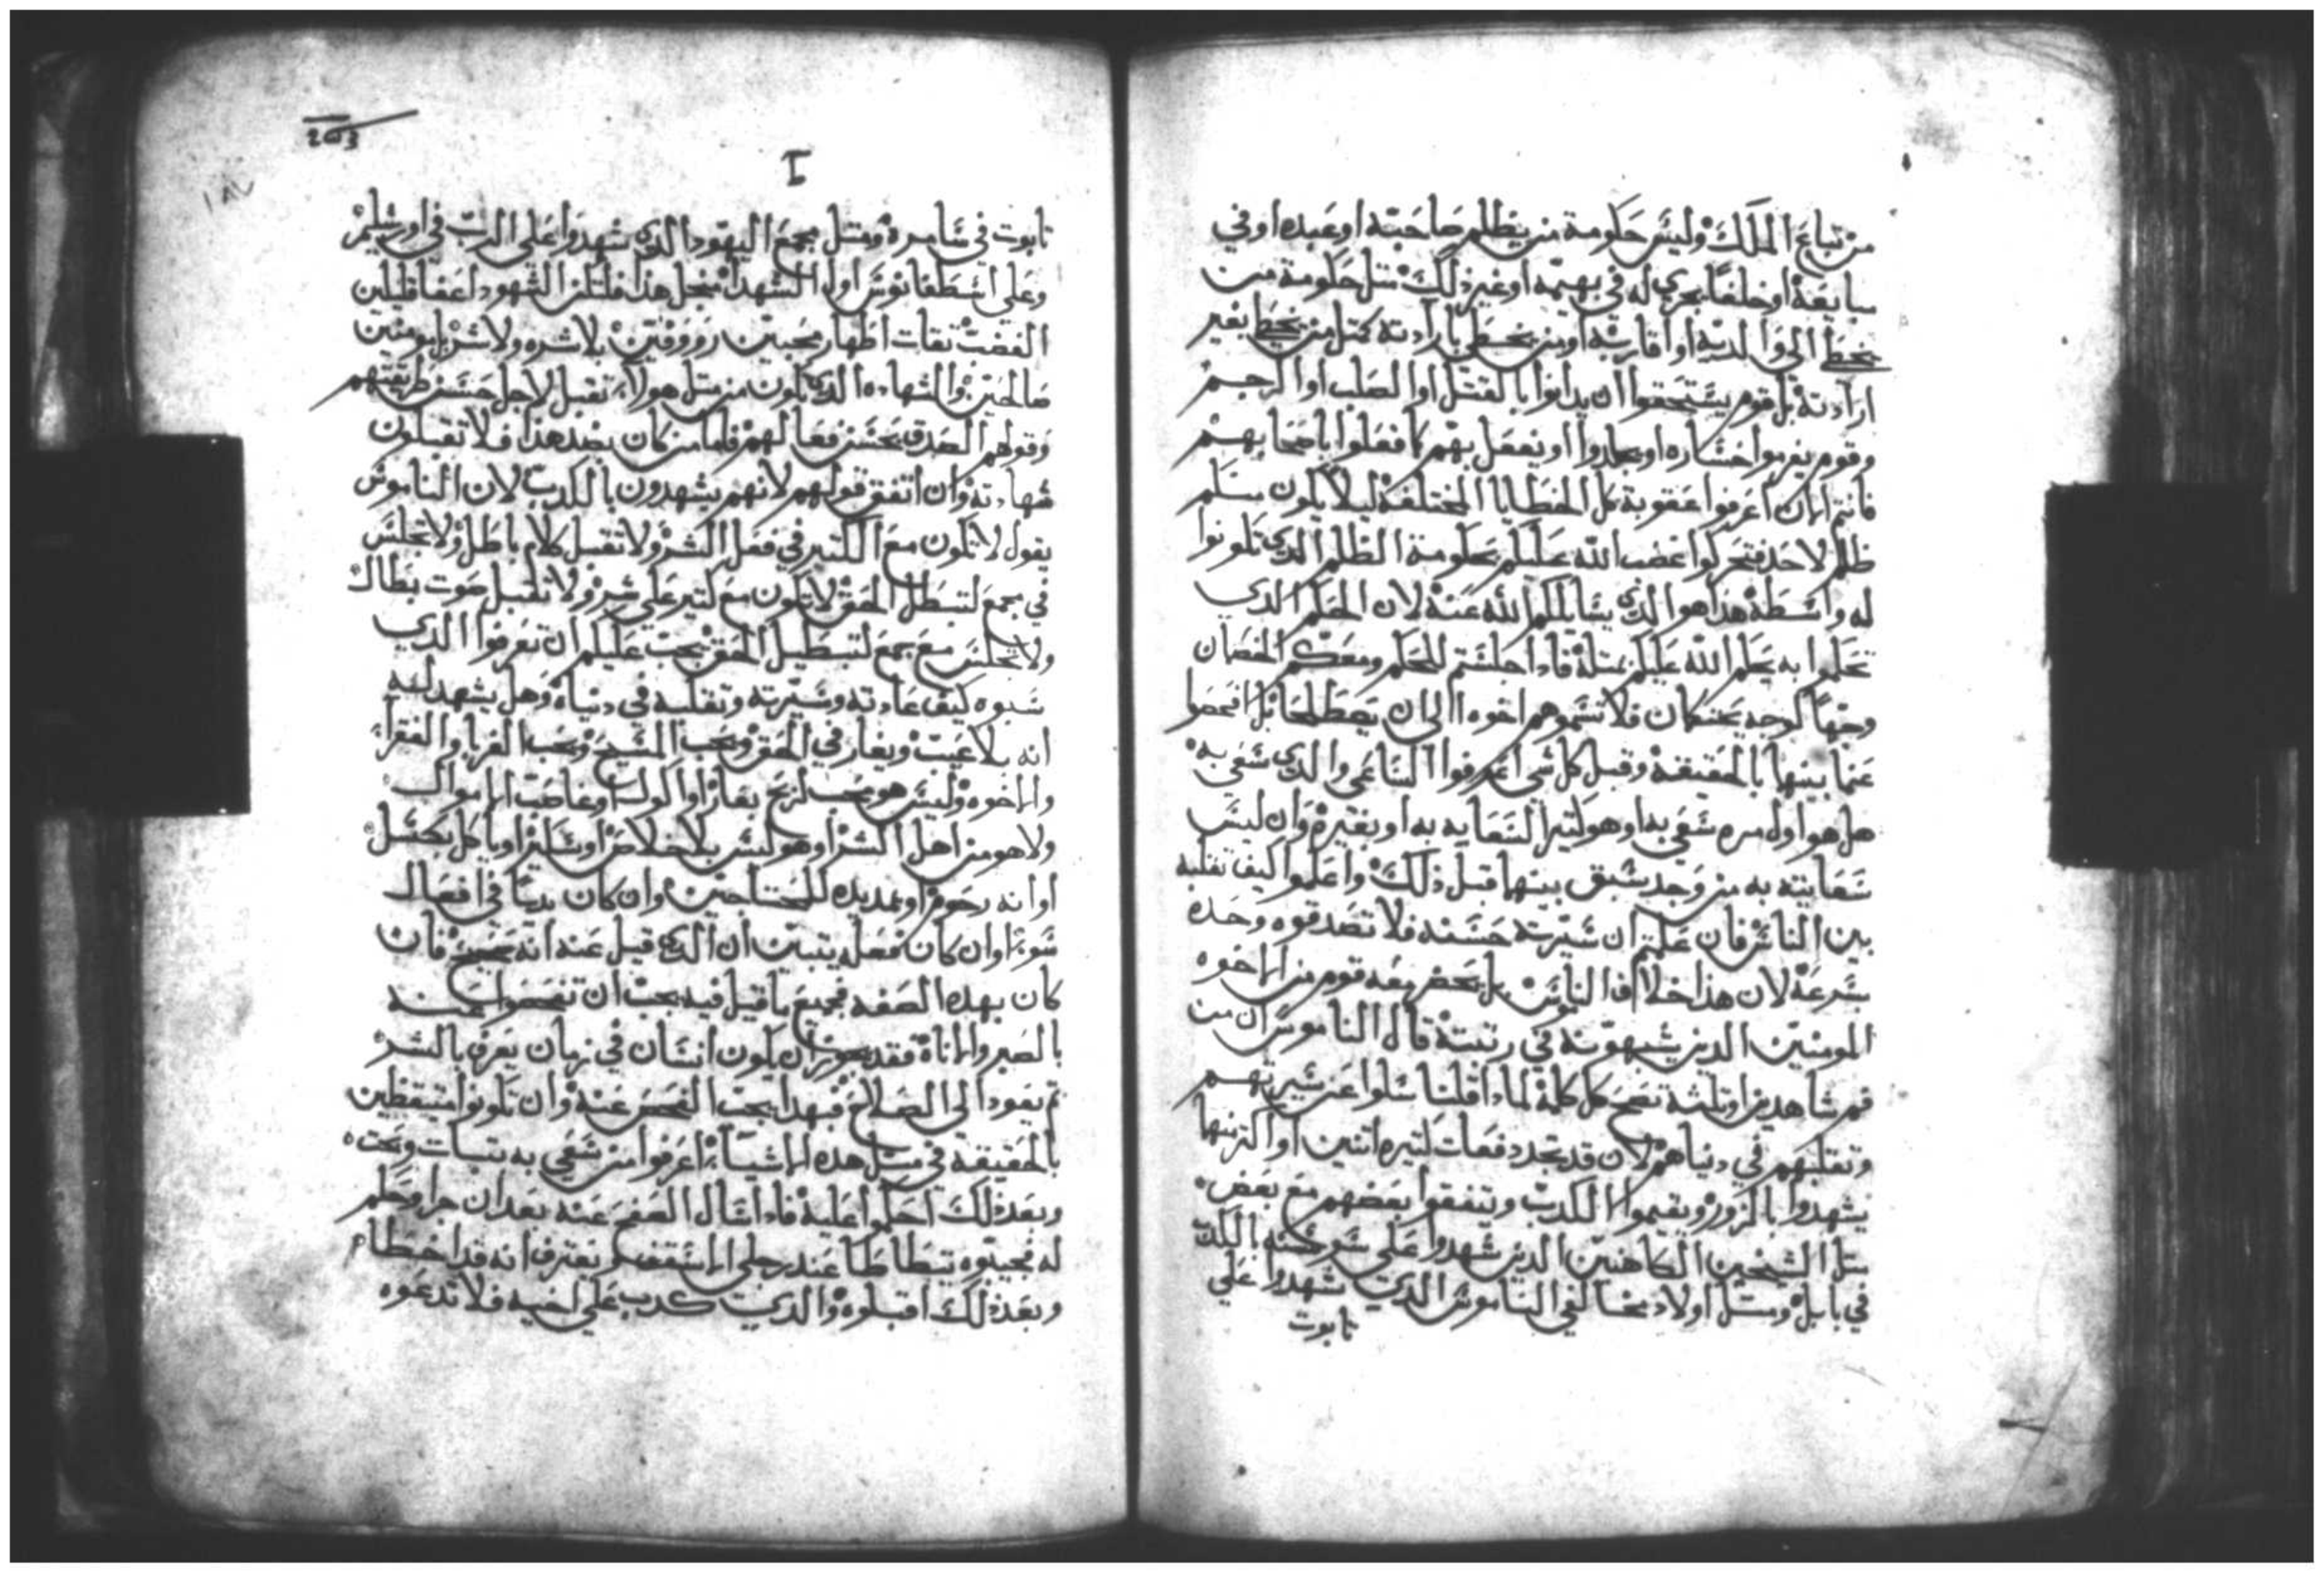 من تباع الملك وليس حكومة من يظلم صاحبه او عبده او في
مبايعة او خلفا يجري له في بهيمه او غير ذلك مثل حكومة من
يخطا الى والديه او اقاربه او من يخطي بارادته كمثل من يخطي بغير
ارادته بل قوم يستحقوا ان يدانوا بالقتل او الصلب او الرجم
وقوم يغرموا خساره او يجلدوا او يفعل بهم كما فعلوا باصحابهم
فانتم الان اعرفوا عقوبة كل الخطايا المختلفة ليلا يكون منكم
ظلم لاحد فتحركوا غضب الله عليكم بحكومة الظلم الذي تكونوا
له واسطة هذا هو الذي يسايلكم الله عنه لان الحكم الذي
تحكموا به يحكم الله عليكم بمثله فاذا جلستم للحكم ومعكم الخصمان
وجها لوجه يحتكمان فلا تسموهم اخوه الى ان يصطلحا بل افحصوا
عما بينهما بالحقيقة وقبل كل شي اعرفوا الساعي والذي سعي به
هل هو اول مره سعي به او هو كثير السعايه به او بغيره وان ليس
سعايته به من وجد سبق بينهما قبل ذلك واعلموا كيف تقلبه
بين الناس فان علمتم ان سيرته حسنه فلا تصدقوه وحده
بسرعة لان هذا خلاف الناموس بل يحضر معه قوم من الاخوه
المومنين الذين يشبهونه في رتبته قال الناموس ان من
فم شاهدين او ثلثه تصح كل كلمة لماذا قلنا سلوا عن سيرتهم
وتقلبهم في دنياهم لان قد تجد دفعات كثيره اثنين او اكثر منهما
يشهدوا بالزور ويقيموا الكدب ويتفقوا بعضهم مع بعض
مثل الشيخين الكاهنين الذين شهدوا على سوسنه بالكدب
في بابل ومثل اولاد مخالفي الناموس الذين شهدوا على
نابوت
I
203
١٨٧
نابوت في سامره ومثل مجمع اليهود الذي شهدوا على الرب في اورشليم
وعلى اسطفانوس اول الشهدا فمن اجل هذا فلتكن الشهود اعفا قليلين
الغضب تقات اطهار محبين رووفين بلا شره ولا شر بل مومنين
صالحين والشهاده الذي تكون من مثل هولاء تقبل لاجل حسن طريقتهم
وقولهم الصدق بحسن فعالهم فاما من كان بضد هذا فلا تقبلون
شهادته وان اتفق قولهم لانهم يشهدون بالكدب لان الناموس
يقول لا تكون مع الكثير في فعل الشر ولا تقبل كلام باطل ولا تجلس
في مجمع لتبطل الحق لا تكون مع كثير على شر ولا تقبل صوت بطال
ولا تجلس مع جمع لتبطيل الحق يجب عليكم ان تعرفوا الذي
سبوه كيف عادته وسيرته وتقلبه في دنياه وهل يشهد له
انه بلا عيب ويغار في الحق ويحب المسيح ويحب الغربا والفقرا
والاخوه وليس هو يحب لربح بقار او اكول او غاصب الاموال
ولا هو من اهل الشر او هو ليس بلا خلاص او سكير او ياكل بكسل
او انه رحوم او يمد يده للمحتاجين وان كان بديا في افعال
سوء او ان كان فعله يتبين ان الذي قيل عنه انه صحيح فان
كان بهده الصفه فجميع ما قيل فيه يجب ان تفحصوا عنه
بالصبر والاناة فقد يجوز ان يكون انسان في زمان يعرف بالشر
ثم يعود الى الصلاح فبهدا يجب الفحص عنه وان تكونوا متيقظين
بالحقيقة في مثل هده الاشياء اعرفوا من سعي به بثبات وصحه
وبعد ذلك احكموا عليه فاذا سال الصفح عنه بعد ان جرا وحكم
له فجيبوه تيطاطا عند رجلي الاسقف ويعترف انه قد اخطا
وبعد ذلك اقبلوه والذي كدب على اخيه فلا تدعوه